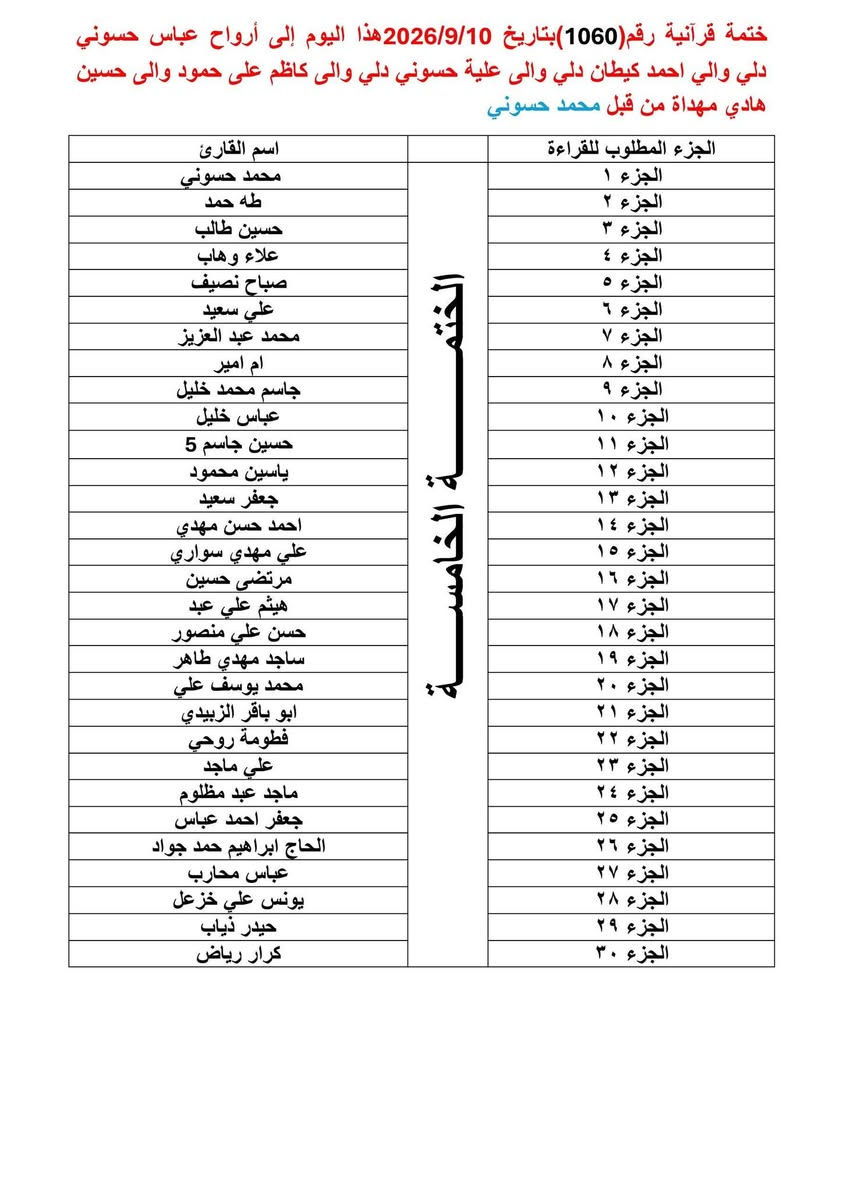 ختمة قرآنية رقم(1060)بتاريخ 2026/9/10هذا اليوم إلى أرواح عباس حسوني
دلي والي احمد كيطان دلي والى علية حسوني دلي والى كاظم على حمود والى حسين
هادي مهداة من قبل محمد حسوني
الجزء المطلوب للقراءة اسم القارئ
الجزء ١ محمد حسوني
الجزء ٢ طه حمد
الجزء ٣ حسين طالب
الجزء ٤ علاء وهاب
الجزء ٥ صباح نصيف
الجزء ٦ علي سعيد
الجزء ٧ محمد عبد العزيز
الجزء ٨ ام امير
الجزء ٩ جاسم محمد خليل
الجزء ١٠ عباس خليل
الجزء ١١ حسين جاسم 5
الجزء ١٢ ياسين محمود
الجزء ١٣ جعفر سعيد
الجزء ١٤ احمد حسن مهدي
الجزء ١٥ علي مهدي سواري
الجزء ١٦ مرتضى حسين
الجزء ١٧ هيثم علي عبد
الجزء ١٨ حسن علي منصور
الجزء ١٩ ساجد مهدي طاهر
الجزء ٢٠ محمد يوسف علي
الجزء ٢١ ابو باقر الزبيدي
الجزء ٢٢ فطومة روحي
الجزء ٢٣ علي ماجد
الجزء ٢٤ ماجد عبد مظلوم
الجزء ٢٥ جعفر احمد عباس
الجزء ٢٦ الحاج ابراهيم حمد جواد
الجزء ٢٧ عباس محارب
الجزء ٢٨ يونس علي خزعل
الجزء ٢٩ حيدر ذياب
الجزء ٣٠ كرار رياض
الختمـــــــة الخامســـــة